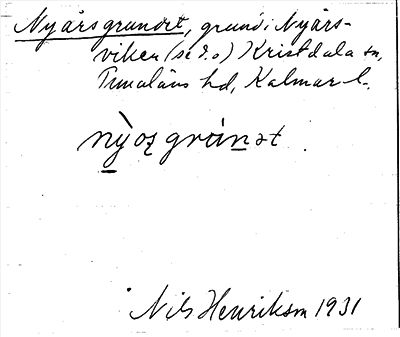 Nyårsgrundet, grund i Nyårs-
viken (se d.o) Kristdala sn,
Tunaläns hd, Kalmar l.
nỳo̱ʒgrún̲ət.
Nils Henrikson 1931